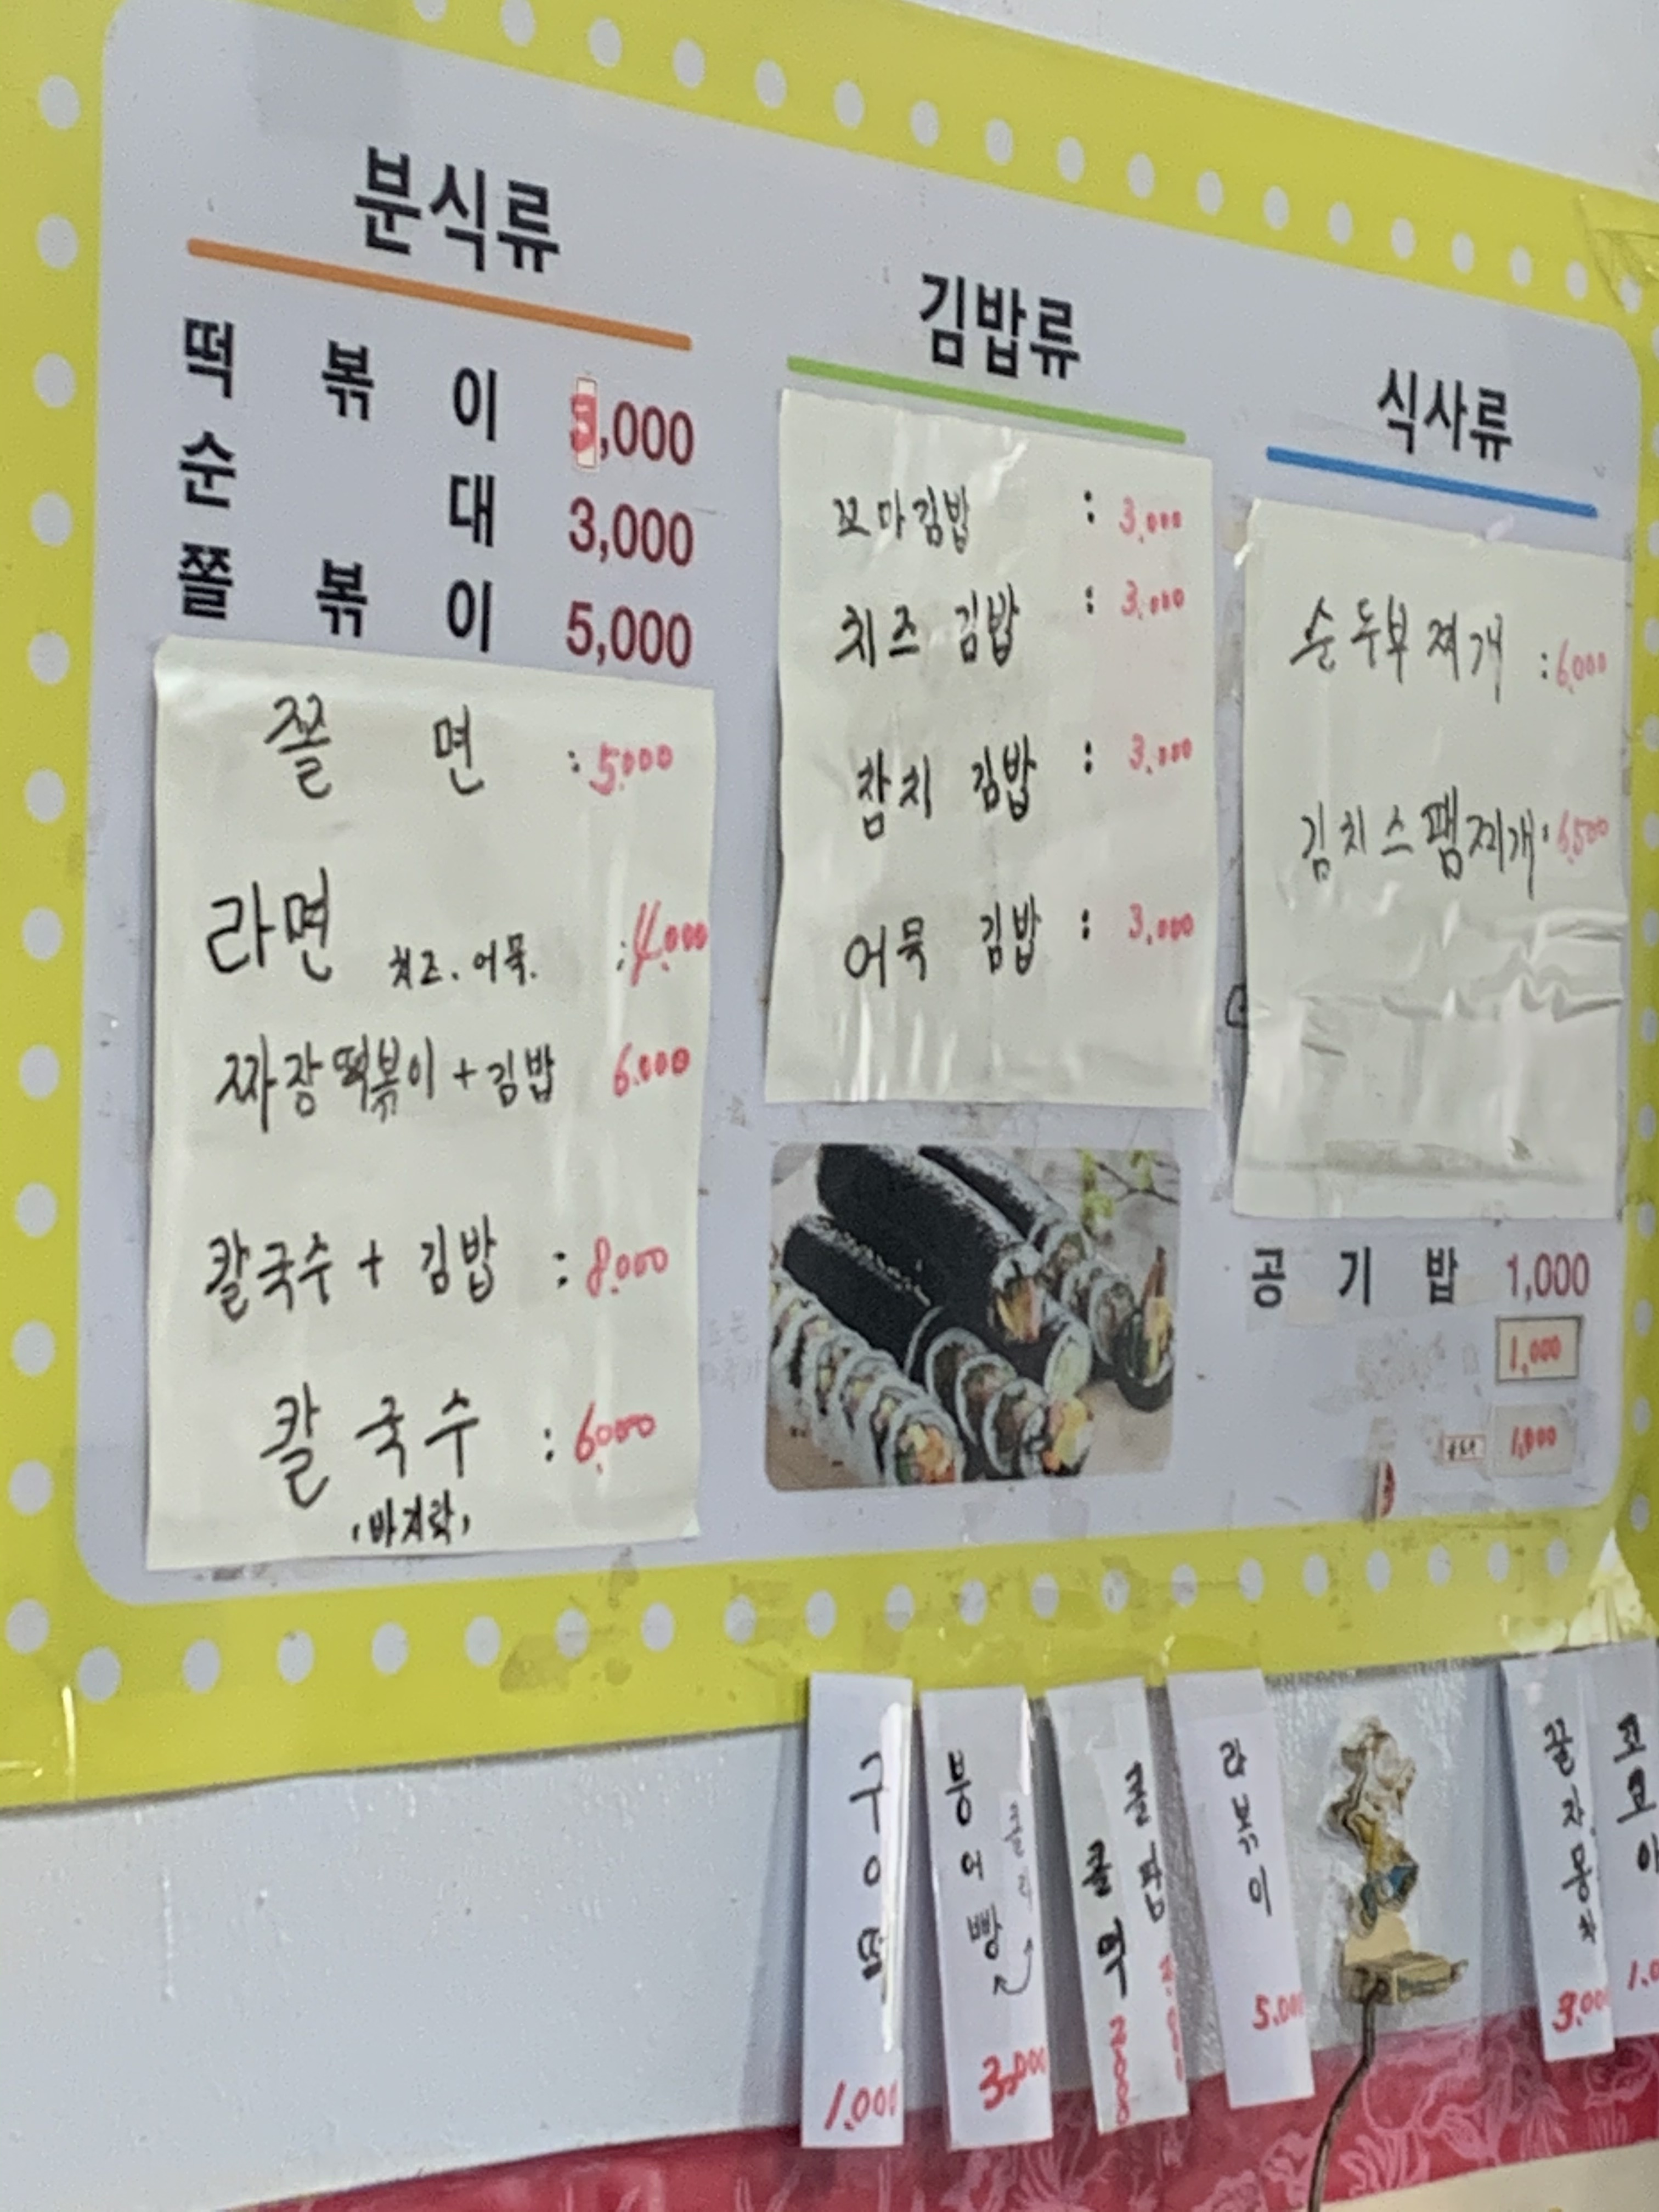 분식류
떡 볶 이 3,000
순 대 3,000
쫄 볶 이 5,000
쫄 면 : 5.000
라면 치즈.어묵. : 4.000
짜장떡볶이+김밥 6.000
칼국수 + 김밥 : 8.000
칼 국 수 : 6.000
(바지락)
김밥류
꼬마김밥 : 3,000
치즈 김밥 : 3.000
참치 김밥 : 3.000
어묵 김밥 : 3.000
식사류
순두부찌개 : 6,000
김치스팸찌개 : 6,500
공 기 밥 1,000
1,000
1,000
구이떡 1.000
붕어빵 3,000
라볶이 5.000
꿀자몽차 3.000
코코아 1.0